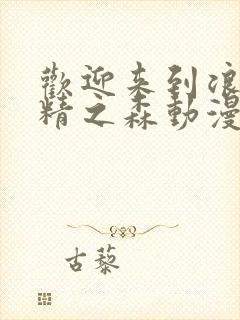 歡迎来到浪
精之森動漫
古藜